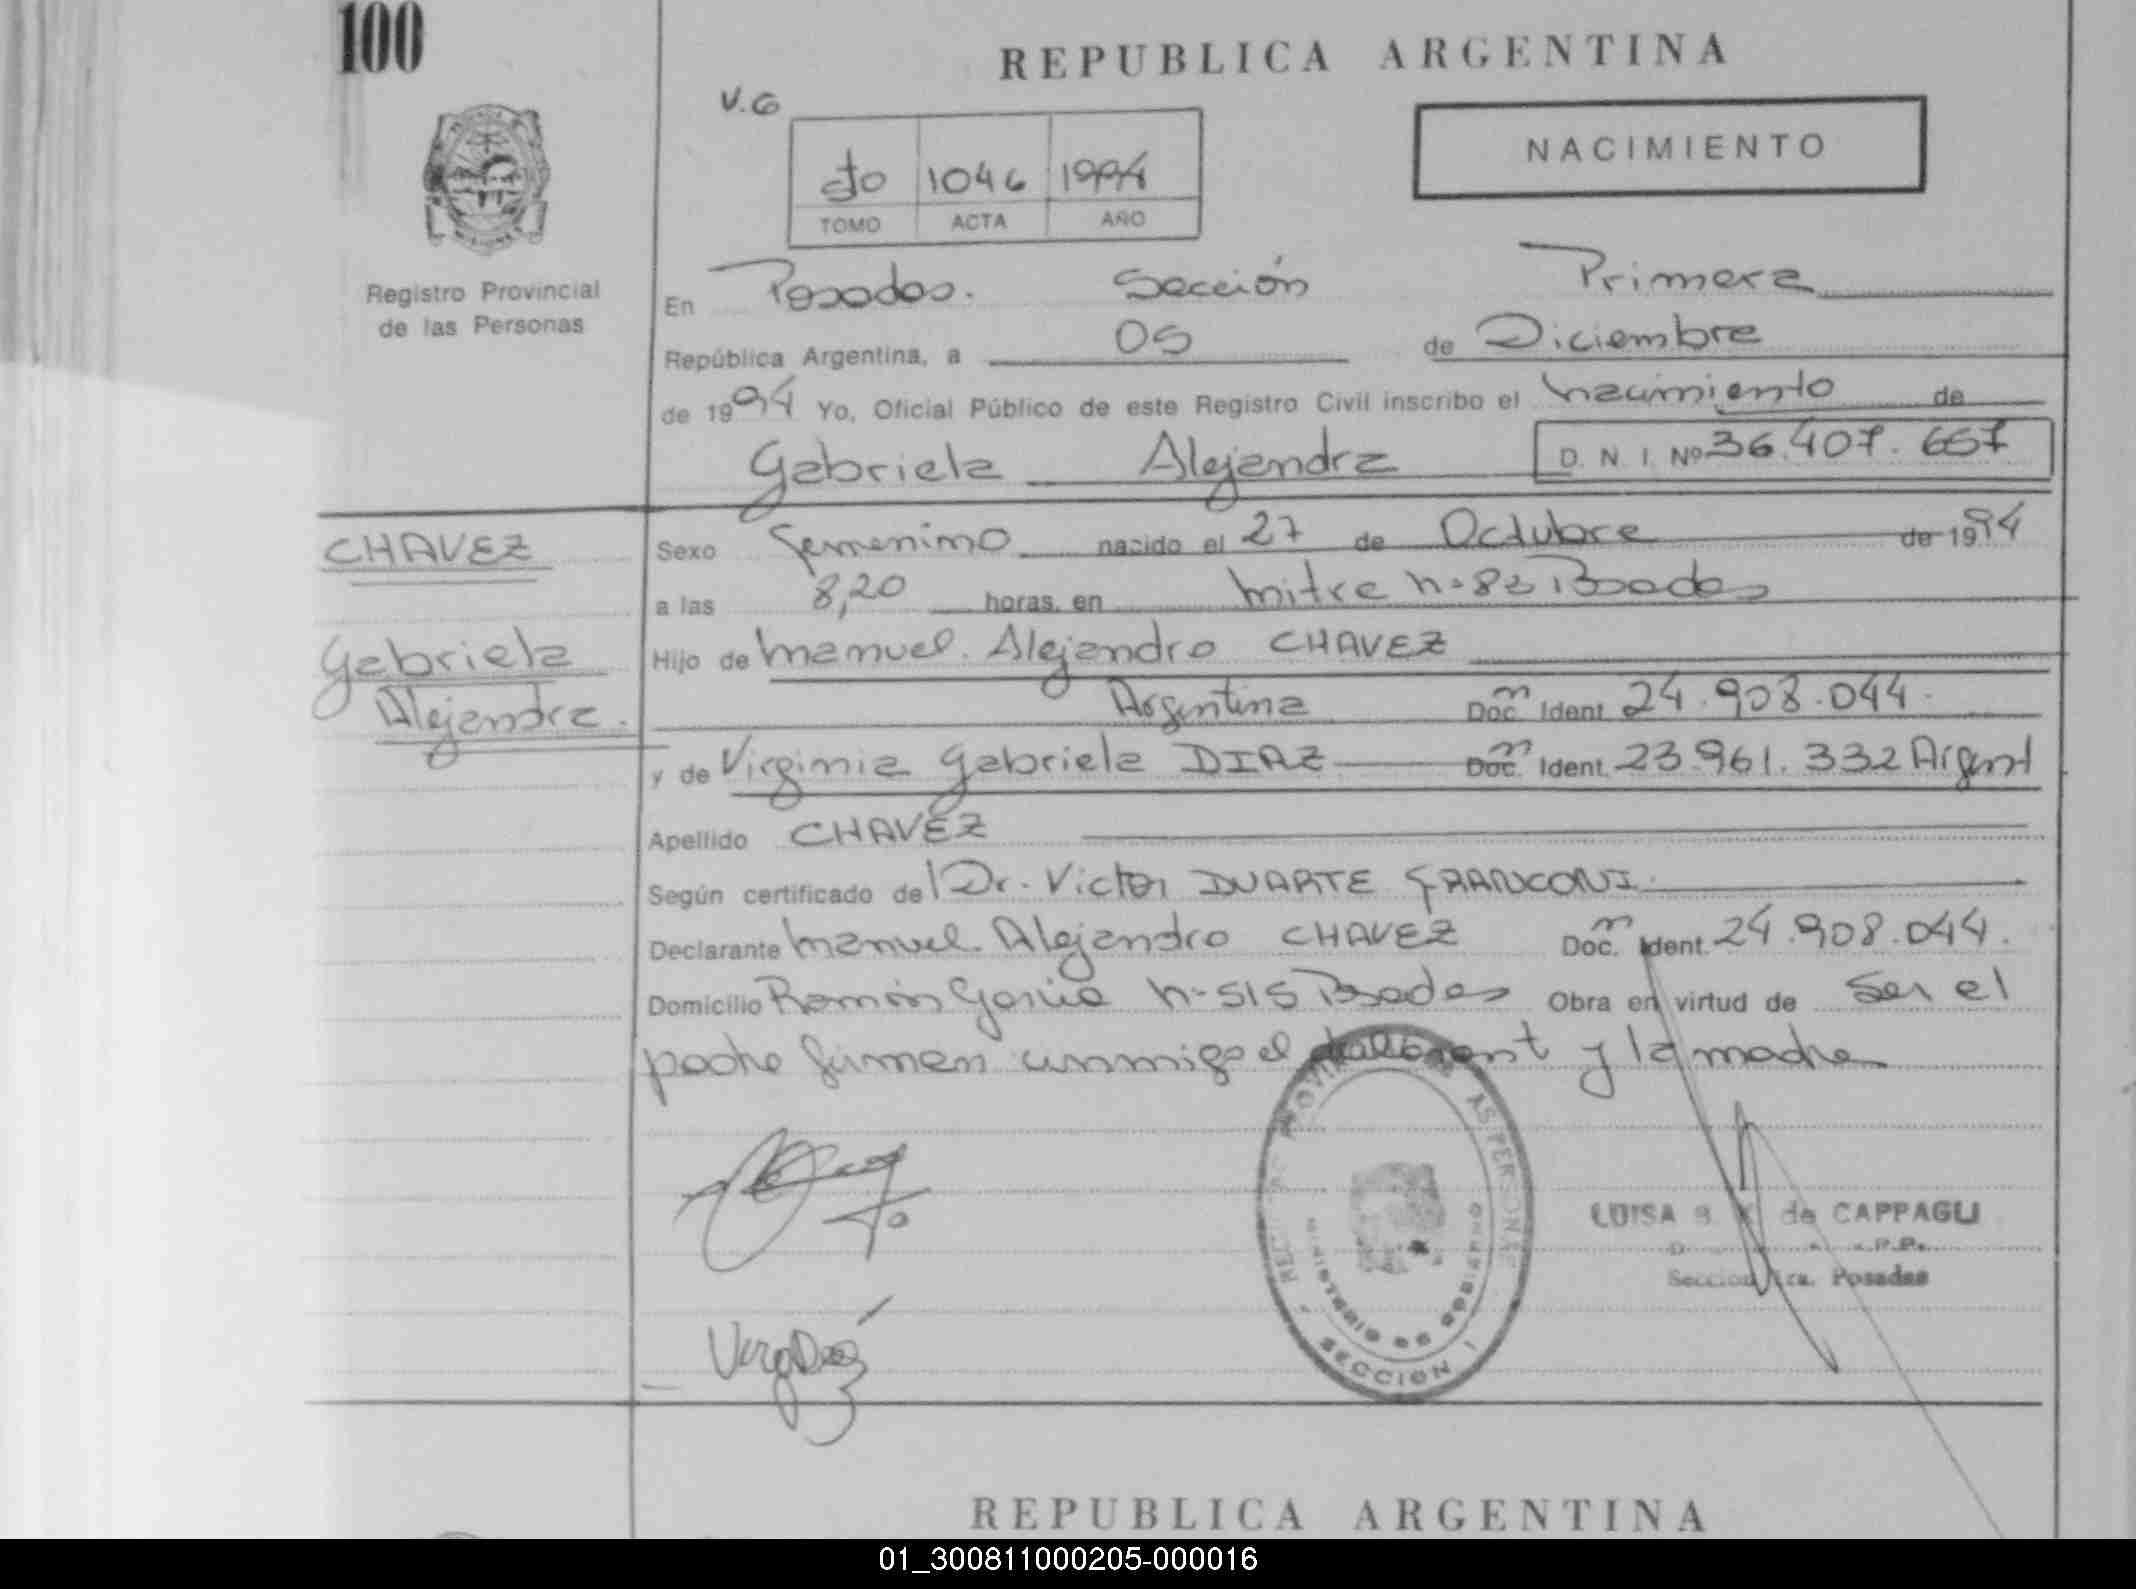 100
REPUBLICA ARGENTINA
V.G
NACIMIENTO
cto 1046 1994
TOMO ACTA AÑO
Registro Provincial
de las Personas
En Posadas. Sección Primera
República Argentina, a 05 de Diciembre
de 1994 Yo, Oficial Público de este Registro Civil inscribo el nacimiento de
Gabriela Alejandra D. N. I. Nº 36.407.657
CHAVEZ
Gabriela
Alejandra.
Sexo femenino nacido el 27 de Octubre de 1994
a las 8,20 horas, en Mitre n- 82 Posadas
Hijo de Manuel. Alejandro CHAVEZ
Argentina Doc. Ident. 24.908.044.
y de Virginia Gabriela DIAZ Doc. Ident. 23.961.332 Argent
Apellido CHAVEZ
Según certificado de Dr. Victor DUARTE FRANCONI.
Declarante Manuel. Alejandro CHAVEZ Doc. Ident. 24.908.044.
Domicilio Ramón García n- 515 Posadas Obra en virtud de ser el
padre firman conmigo el y la madre
MINISTERIO DE GOBIERNO
SECCION 1
LUISA de CAPPAGLI
Seccion 1ra. Posadas
REPUBLICA ARGENTINA
01_300811000205-000016